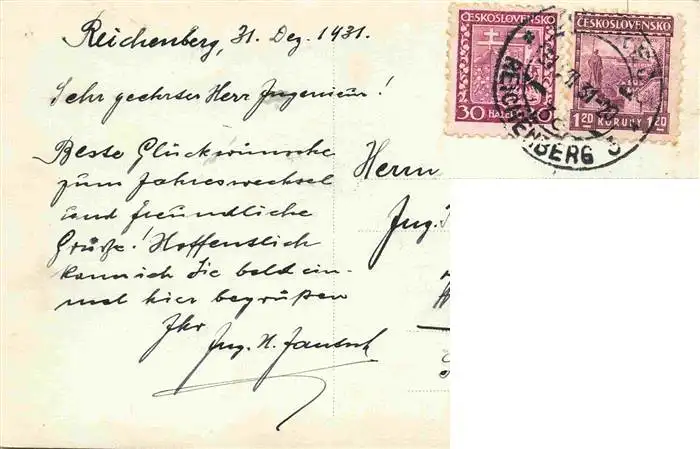 Reichenberg, 31. Dez. 1931.
Sehr geehrter Herr Ingenieur!
Beste Glückwünsche
zum Jahreswechsel
und freundliche
Grüße! Hoffentlich
kann ich Sie bald ein-
mal hier begrüßen
Ihr
Ing. H. Jautsch
Herrn
Ing.
ČESKOSLOVENSKO
30
ČESKOSLOVENSKO
1.20 KORUNY 1.20
REICHENBERG